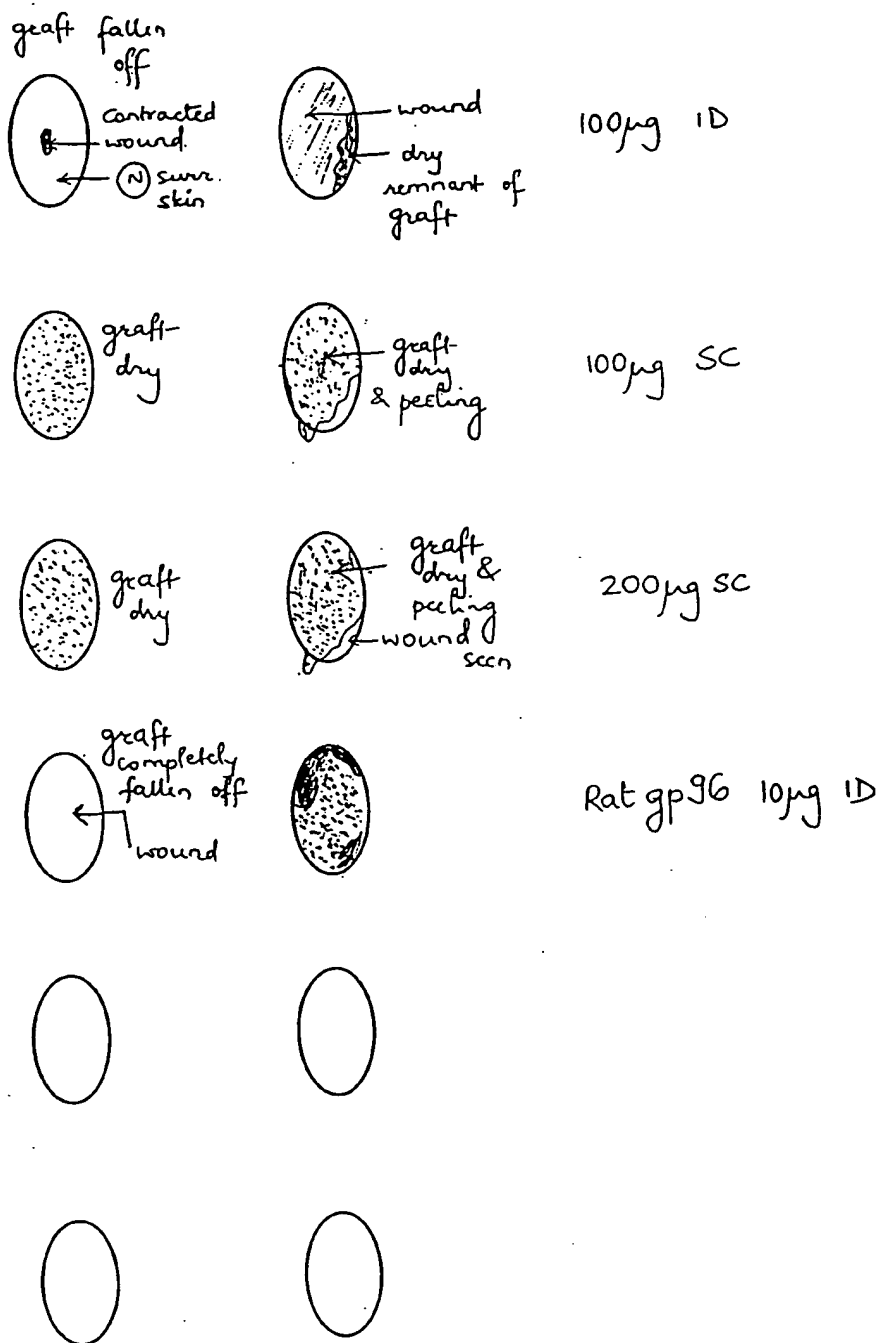 graft fallen
off
contracted
wound.
(N) surr.
skin
wound
dry
remnant of
graft
100µg ID
graft
dry
graft
dry
& peeling
100µg SC
graft
dry
graft
dry &
peeling
wound
seen
200µg SC
graft
completely
fallen off
wound
Rat gp96 10µg ID